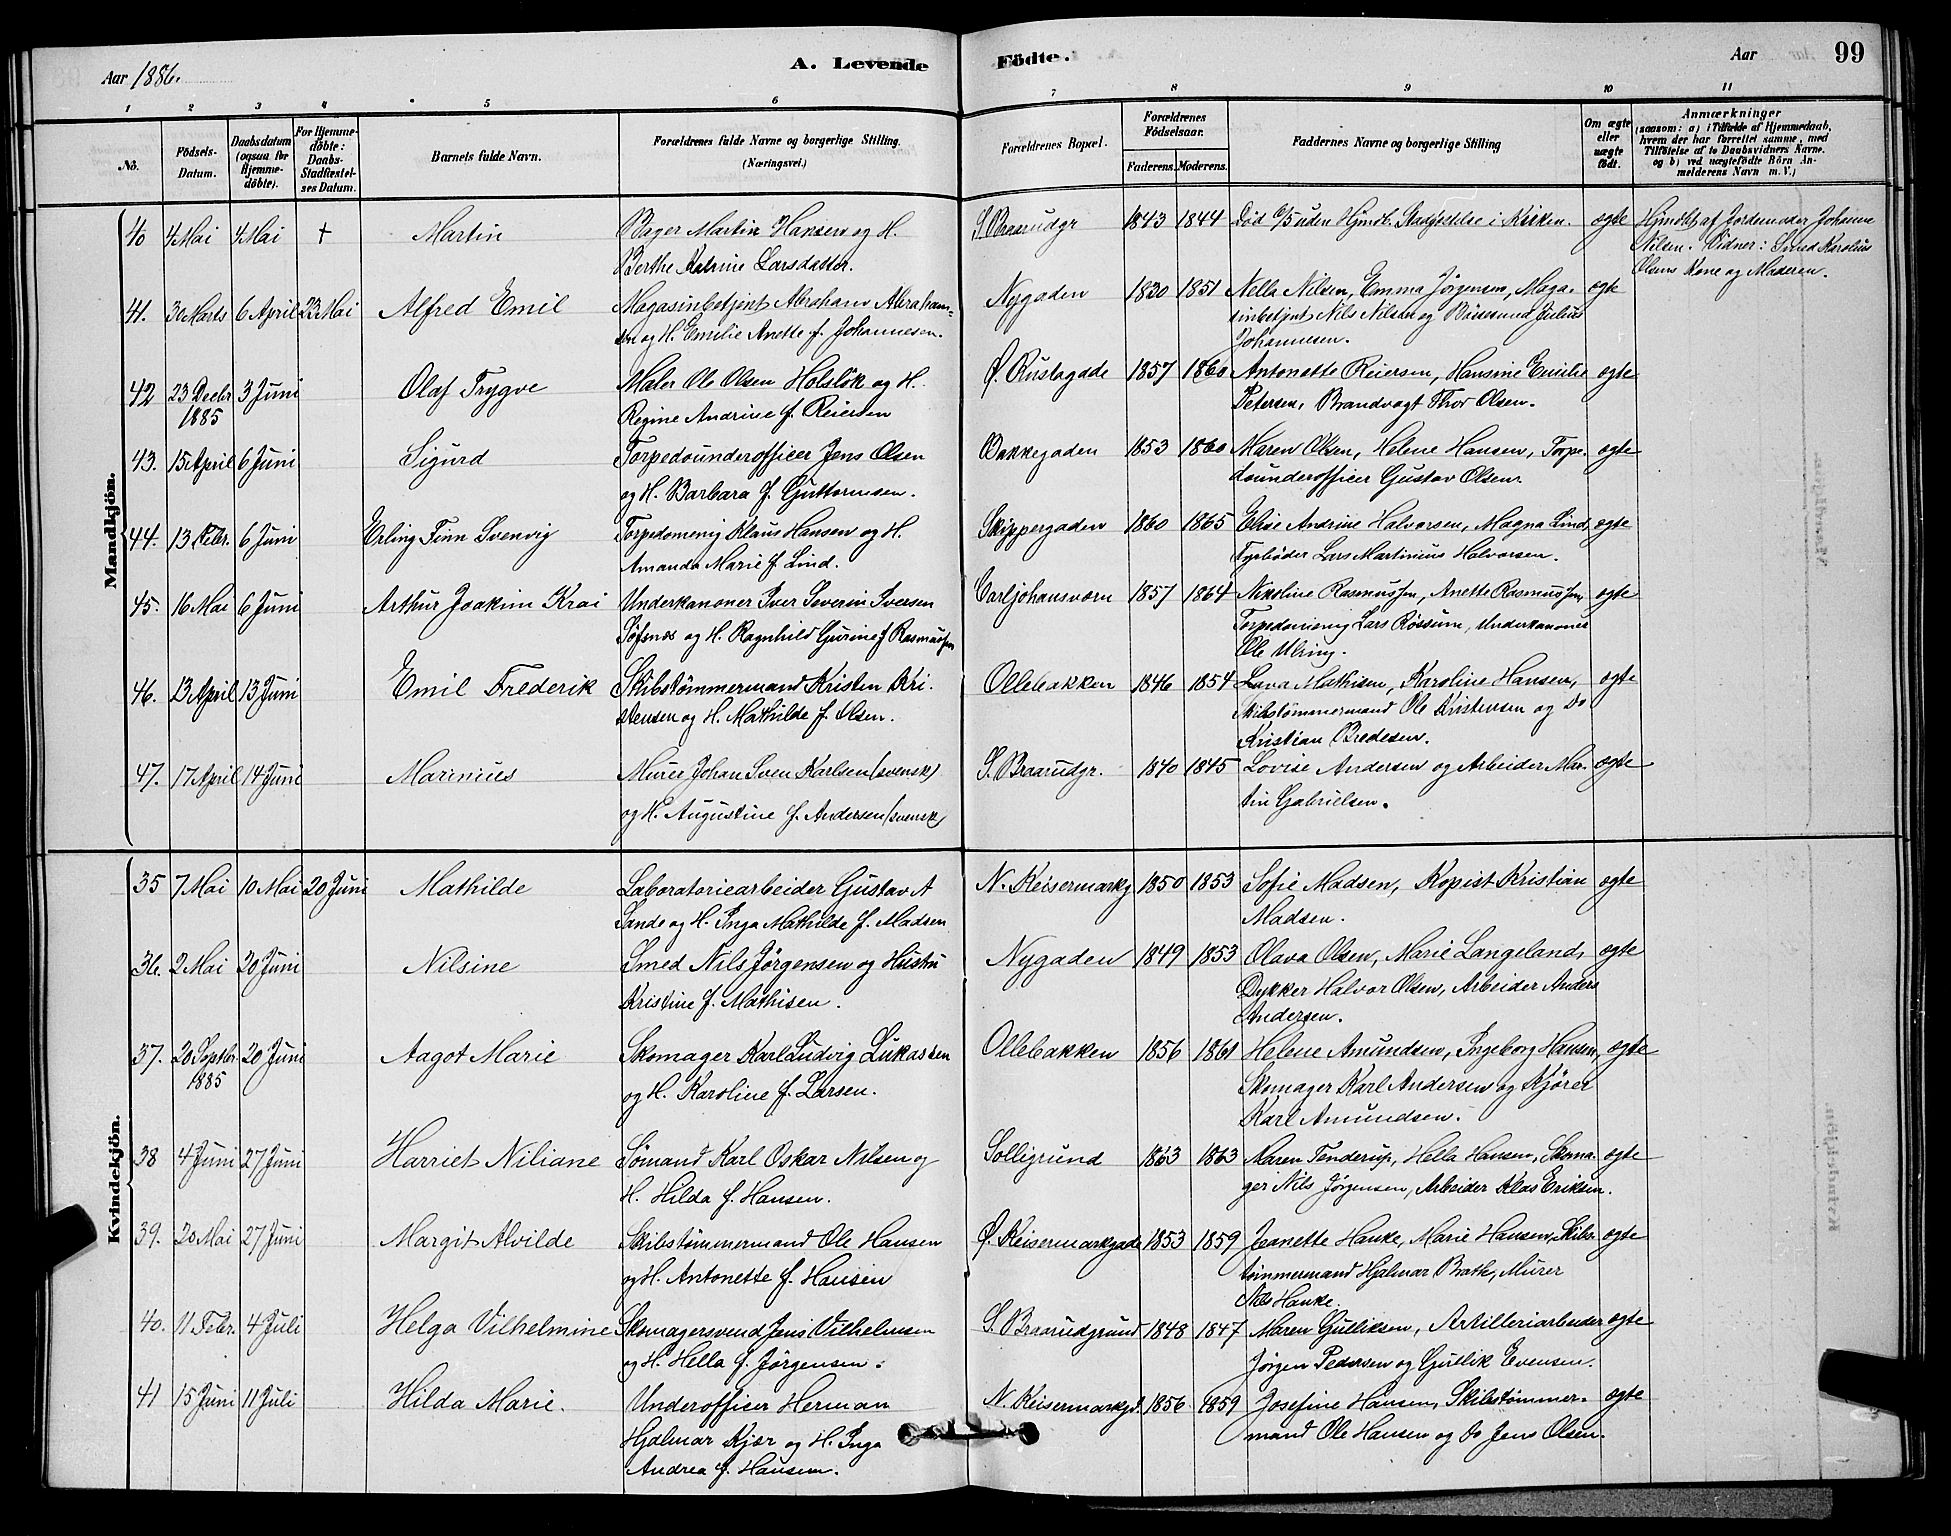 Aar 1886.
A. Levende Födte.
Aar
99
1 2 3 4 5 6 7 8 9 10 11
No.
Födsels-Datum.
Daabsdatum (ogsaa for Hjemmedöbte).
For Hjemmedöbte: Daabs-Stadfæstelses Datum.
Barnets fulde Navn.
Forældrenes fulde Navne og borgerlige Stilling. (Næringsvei.)
Forældrenes Bopæl.
Forældrenes Födselsaar.
Faderens. Moderens.
Faddernes Navne og borgerlige Stilling
Om ægte eller uægte födt.
Anmærkninger
(saasom: a) i Tilfælde af Hjemmedaab, hvem der har forrettet samme, med Tilföielse af to Daabsvidners Navne. og b) ved uægtefödte Börn Anmelderens Navn m. V.)
Mandkjön.
40 4 Mai 4 Mai + Martin Bager Martin Hansen og H. S. Braarudgr 1843 1844 Död 6/5 uden Hjmdb. Stadfæstelse i Kirken. ægte Hjmdbt af Jordemoder Johanne
Berthe Katrine Larsdatter. Nilsen. Vidner: Smed Karolius
Olsens Kone og Moderen.
41. 30 Marts 6 April 23 Mai Alfred Emil Magasinbetjent Abraham Abraham- Nygaden 1830 1851 Nella Nilsen, Emma Jörgensen, Maga- ægte
sen og H. Emilie Anette f. Johannesen. sinbetjent Nils Nilsen og Bösesmed Julius
Johannesen.
42 23 Decbr 3 Juni Olaf Trygve Maler Ole Olsen Holslök og H. Ø. Rustagade 1857 1860 Antonette Reiersen, Hansine Emilie ægte
1885 Regine Andrine f. Reiersen Petersen, Brandvagt Thor Olsen.
43. 15 April 6 Juni Sigurd Torpedounderofficer Jens Olsen Bakkegaden 1853 1860 Maren Olsen, Helene Hansen, Torpe- ægte
og H. Barbara f. Guttormsen. dounderofficer Gustav Olsen.
44. 13 Febr. 6 Juni Erling Finn Svenvig Torpedomenig Klaus Hansen og H. Skippergaden 1860 1865 Elise Andrine Halvorsen, Magna Lind, ægte
Amanda Marie f. Lind. Fyrböder Lars Martinius Halvorsen.
45. 16 Mai 6 Juni Arthur Joakim Krai Underkanoner Iver Severin Iversen Carljohansværn 1857 1864 Nikoline Rasmussen, Anette Rasmussen, ægte
Söfsnes og H. Ragnhild Gurine f. Rasmussen Torpedomenig Lars Rössum, Underkanoner
Ole Ulring.
46. 13 April 13 Juni Emil Frederik Skibstømmermand Kristen Kri- Ollebakken 1846 1854 Lava Mathisen, Karoline Hansen, ægte
stensen og H. Mathilde f. Olsen. Skibstömmermand Ole Kristensen og Do
Kristian Bredesen.
47. 17 April 14 Juni Marinius Murer Johan Sven Karlsen (svensk) S. Braarudgr. 1840 1845 Lovise Andersen og Arbeider Mar- ægte
og H. Augustine f. Andersen (svensk) tin Gabrielsen.
Kvindekjön.
35 7 Mai 10 Mai 20 Juni Mathilde Laboratoriearbeider Gustav A N. Keisermarkg 1850 1853 Sofie Madsen, Kopist Kristian ægte
Sande og H. Inga Mathilde f. Madsen Madsen.
36. 2 Mai 20 Juni Nilsine Smed Nils Jørgensen og Hustru Nygaden 1849 1853 Olava Olsen, Marie Langeland, ægte
Kristine f. Mathisen. Dykker Halvor Olsen, Arbeider Anders
Andersen.
37. 20 Septbr. 20 Juni Aagot Marie Skomager Karl Ludvig Lukassen Ollebakken 1856 1861 Helene Amundsen, Ingeborg Hansen, ægte
1885 og H. Karoline f. Larsen. Skomager Karl Andersen og Kjører
Karl Amundsen.
38 4 Juni 27 Juni Harriet Niliane Sömand Karl Oskar Nilsen og Solligrund 1863 1863 Maren Tenderup, Hella Hansen, Skoma- ægte
H. Hilda f. Hansen. ger Nils Jörgensen, Arbeider Klas Eriksen.
39. 20 Mai 27 Juni Margit Alvilde Skibstömmermand Ole Hansen Ø. Keisermarkgade 1853 1859 Jeanette Hanke, Marie Hansen, Skibs- ægte
og H. Antonette f. Hansen tömmermand Hjalmar Brath, Murer
Nils Hanke.
40. 11 Febr. 4 Juli Helga Vilhelmine Skomagersvend Jens Vilhelmsen S. Braarudgrund 1848 1847 Maren Gulliksen, Artilleriarbeider ægte
og H. Hella f. Jørgensen. Jörgen Pedersen og Gullik Evensen.
41 15 Juni 11 Juli Hilda Marie. Underofficer Herman N. Keisermarkgd. 1856 1859 Josefine Hansen, Skibstömmer- ægte
Hjalmar Kjær og H. Inga mand Ole Hansen og do Jens Olsen.
Andrea f. Hansen.